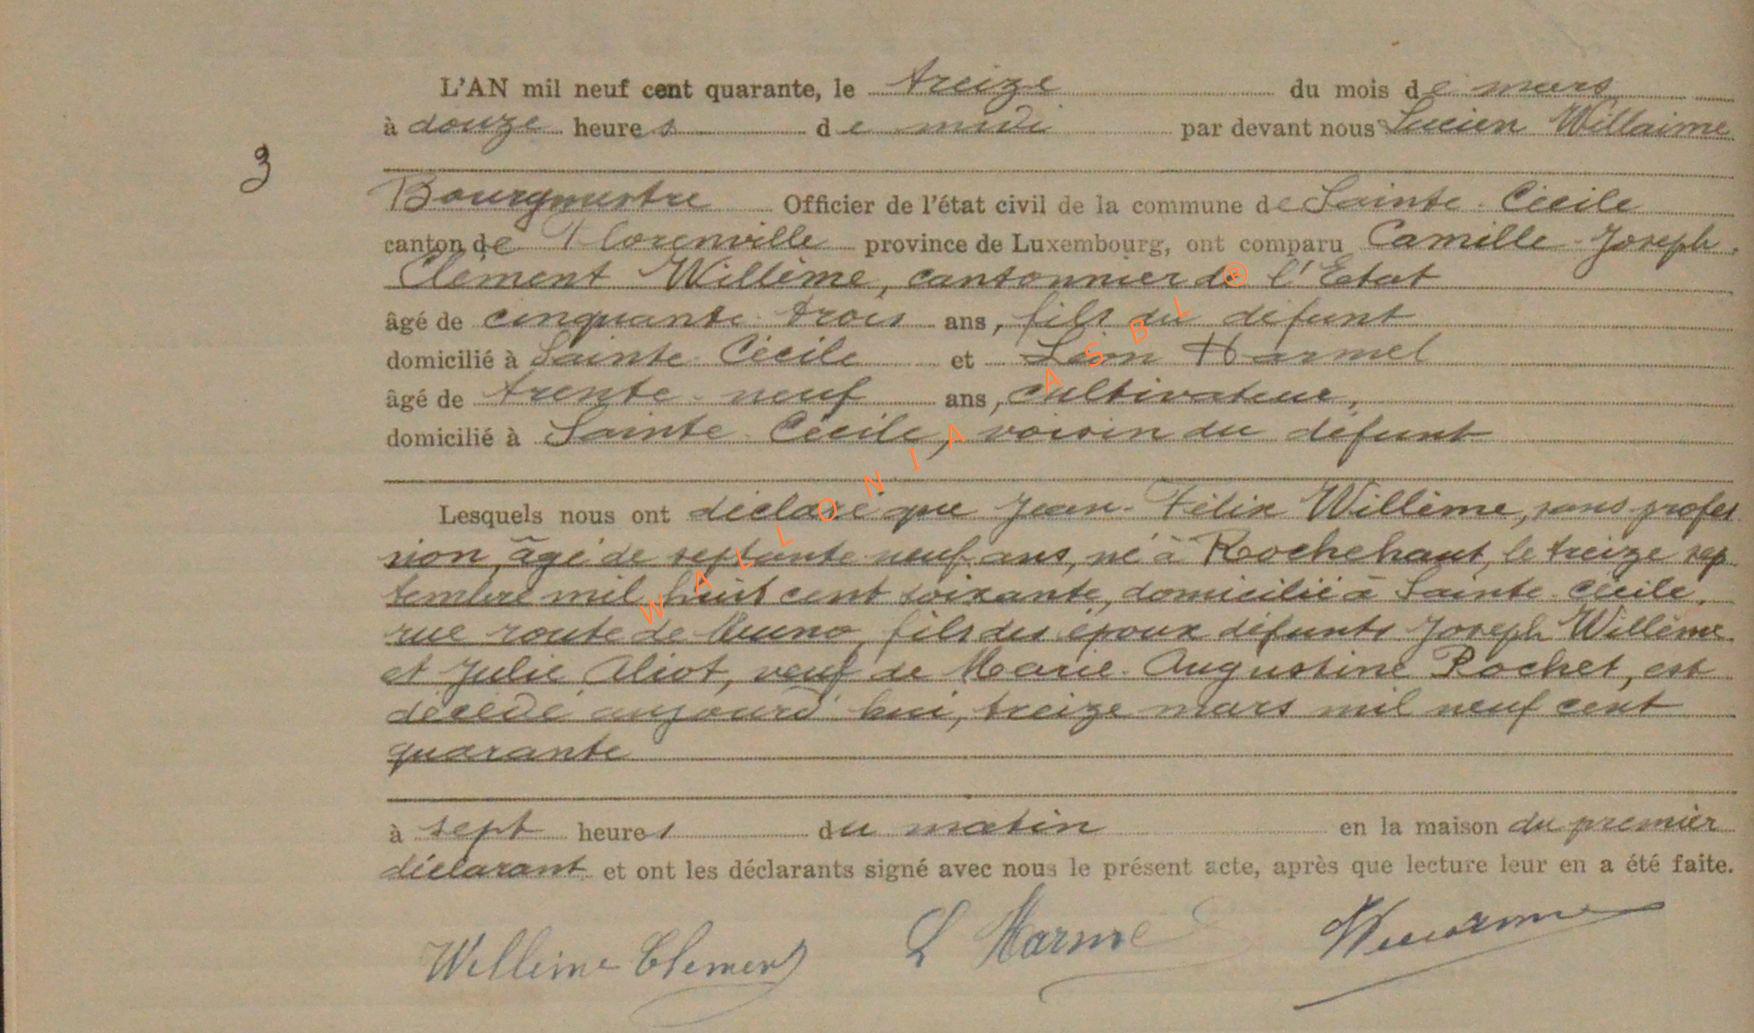 L'AN mil neuf cent quarante, le treize du mois de mars
à douze heures de midi par devant nous Lucien Willaime
3
Bourgmestre Officier de l'état civil de la commune de Sainte-Cécile
canton de Florenville province de Luxembourg, ont comparu Camille-Joseph-
Clément Willème, cantonnier de l'Etat
âgé de cinquante-trois ans, fils du défunt
domicilié à Sainte-Cécile et Léon Harmel
âgé de trente-neuf ans, cultivateur,
domicilié à Sainte-Cécile, voisin du défunt
Lesquels nous ont déclaré que Jean-Félix Willème, sans profes
sion, âgé de septante neuf ans, né à Rochehaut, le treize sep
tembre mil huit cent soixante, domicilié à Sainte-Cécile,
rue route de Muno, fils des époux défunts Joseph Willème
et Julie Aliot, veuf de Marie-Augustine Rochet, est
décédé aujourd'hui, treize mars mil neuf cent
quarante
à sept heures du matin en la maison du premier
déclarant et ont les déclarants signé avec nous le présent acte, après que lecture leur en a été faite.
Willème Clement L Harmel
WALLONIA ASBL ®